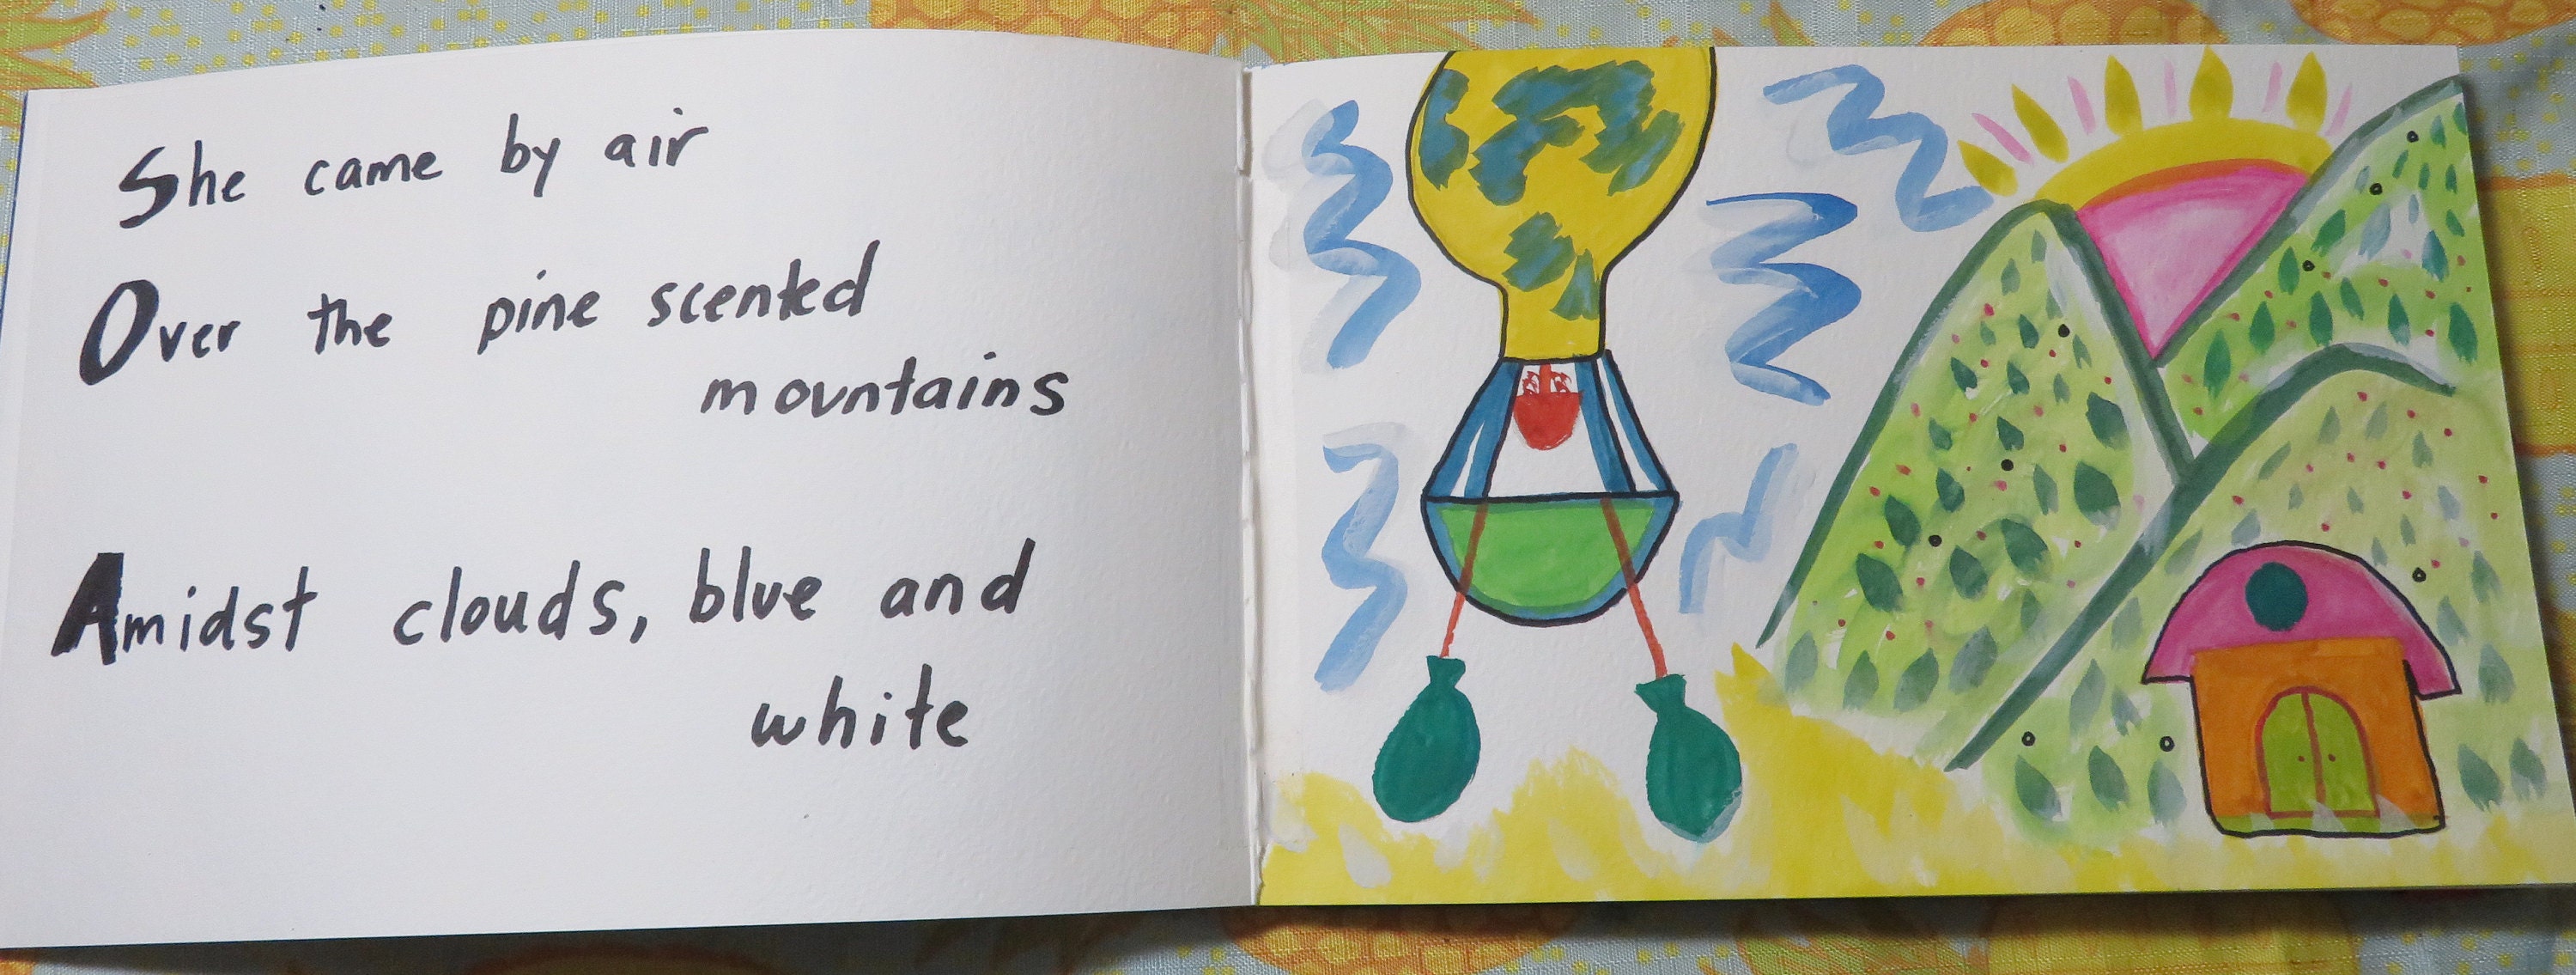 She came by air
Over the pine scented
mountains
Amidst clouds, blue and
white